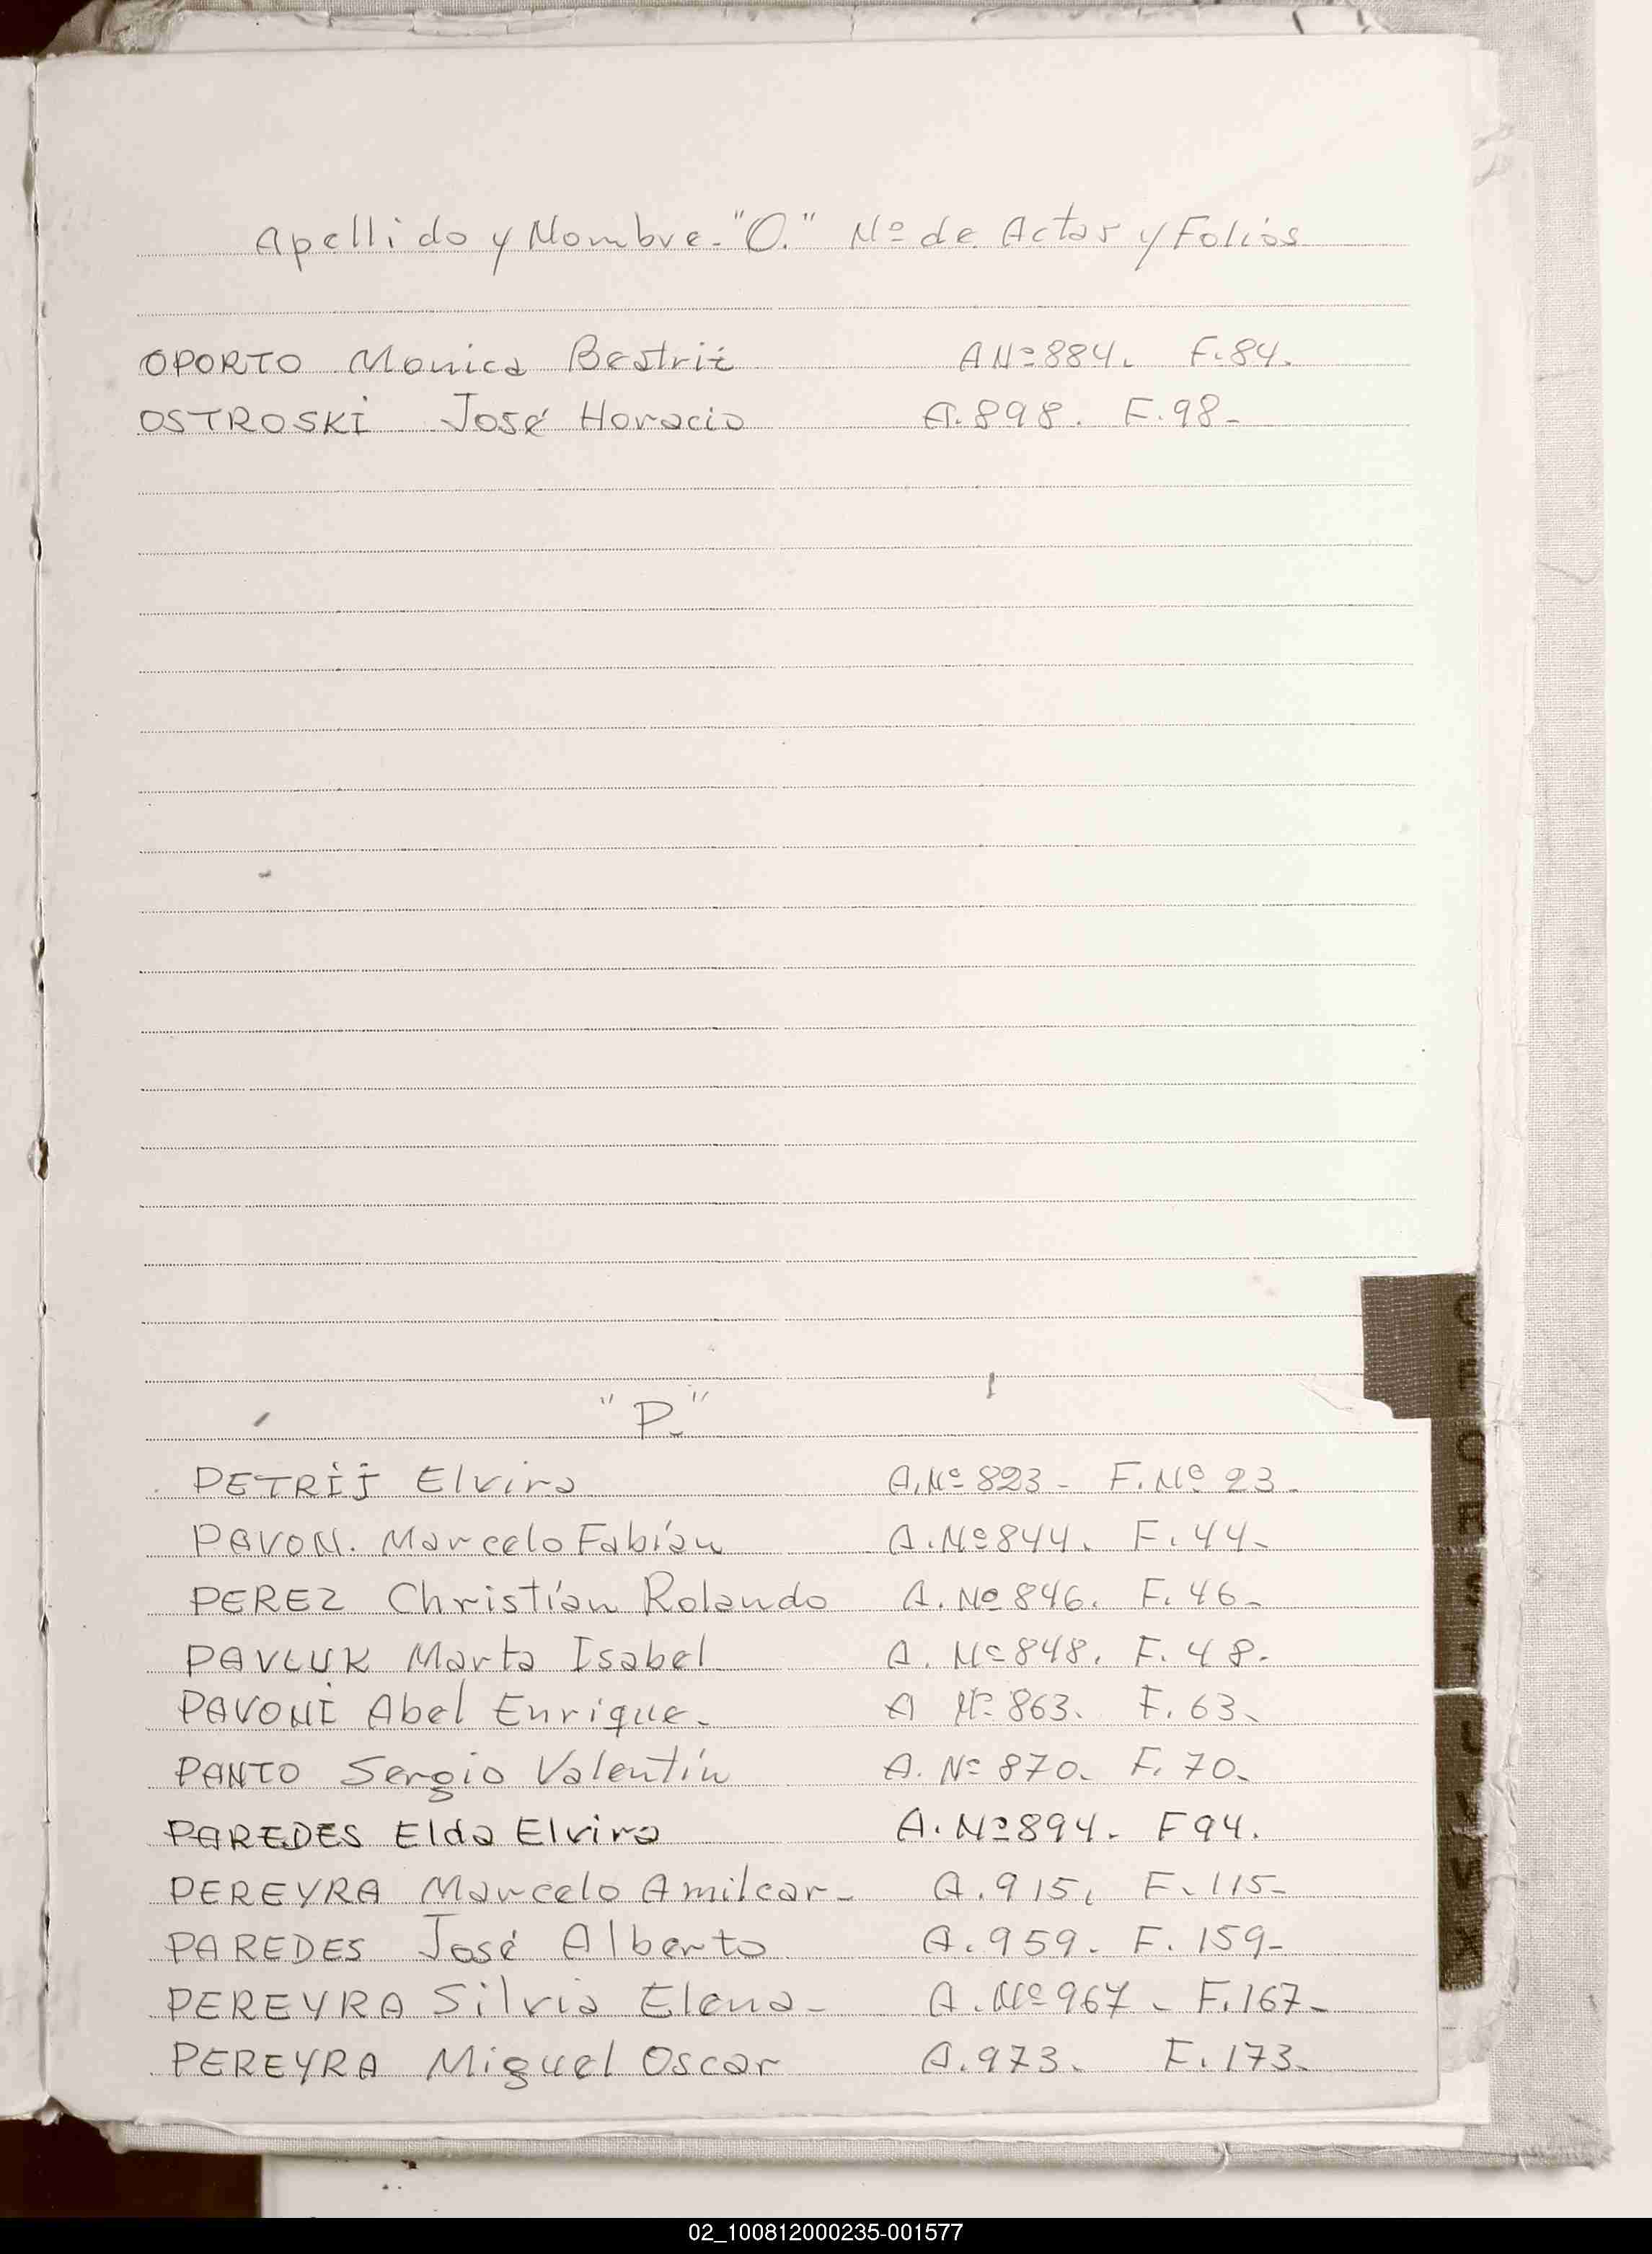 Apellido y Nombre. "O." Nº de Actas y Folios
OPORTO Monica Beatriz ANº884. F.84.
OSTROSKI José Horacio A.898. F.98-
"P."
PETRIJ Elvira A.Nº823- F.Nº23-
PAVON. Marcelo Fabián A.Nº844. F.44-
PEREZ Christían Rolando A.Nº846. F.46-
PAVLUK Marta Isabel A.Nº848. F.48-
PAVONI Abel Enrique. A Nº863. F.63.
PANTO Sergio Valentín A.Nº870. F.70.
PAREDES Elda Elvira A.Nº894. F94.
PEREYRA Marcelo Amilcar- A.915. F.115-
PAREDES José Alberto A.959. F.159-
PEREYRA Silvia Elena- A.Nº967. F.167-
PEREYRA Miguel Oscar A.973. F.173.
02_100812000235-001577